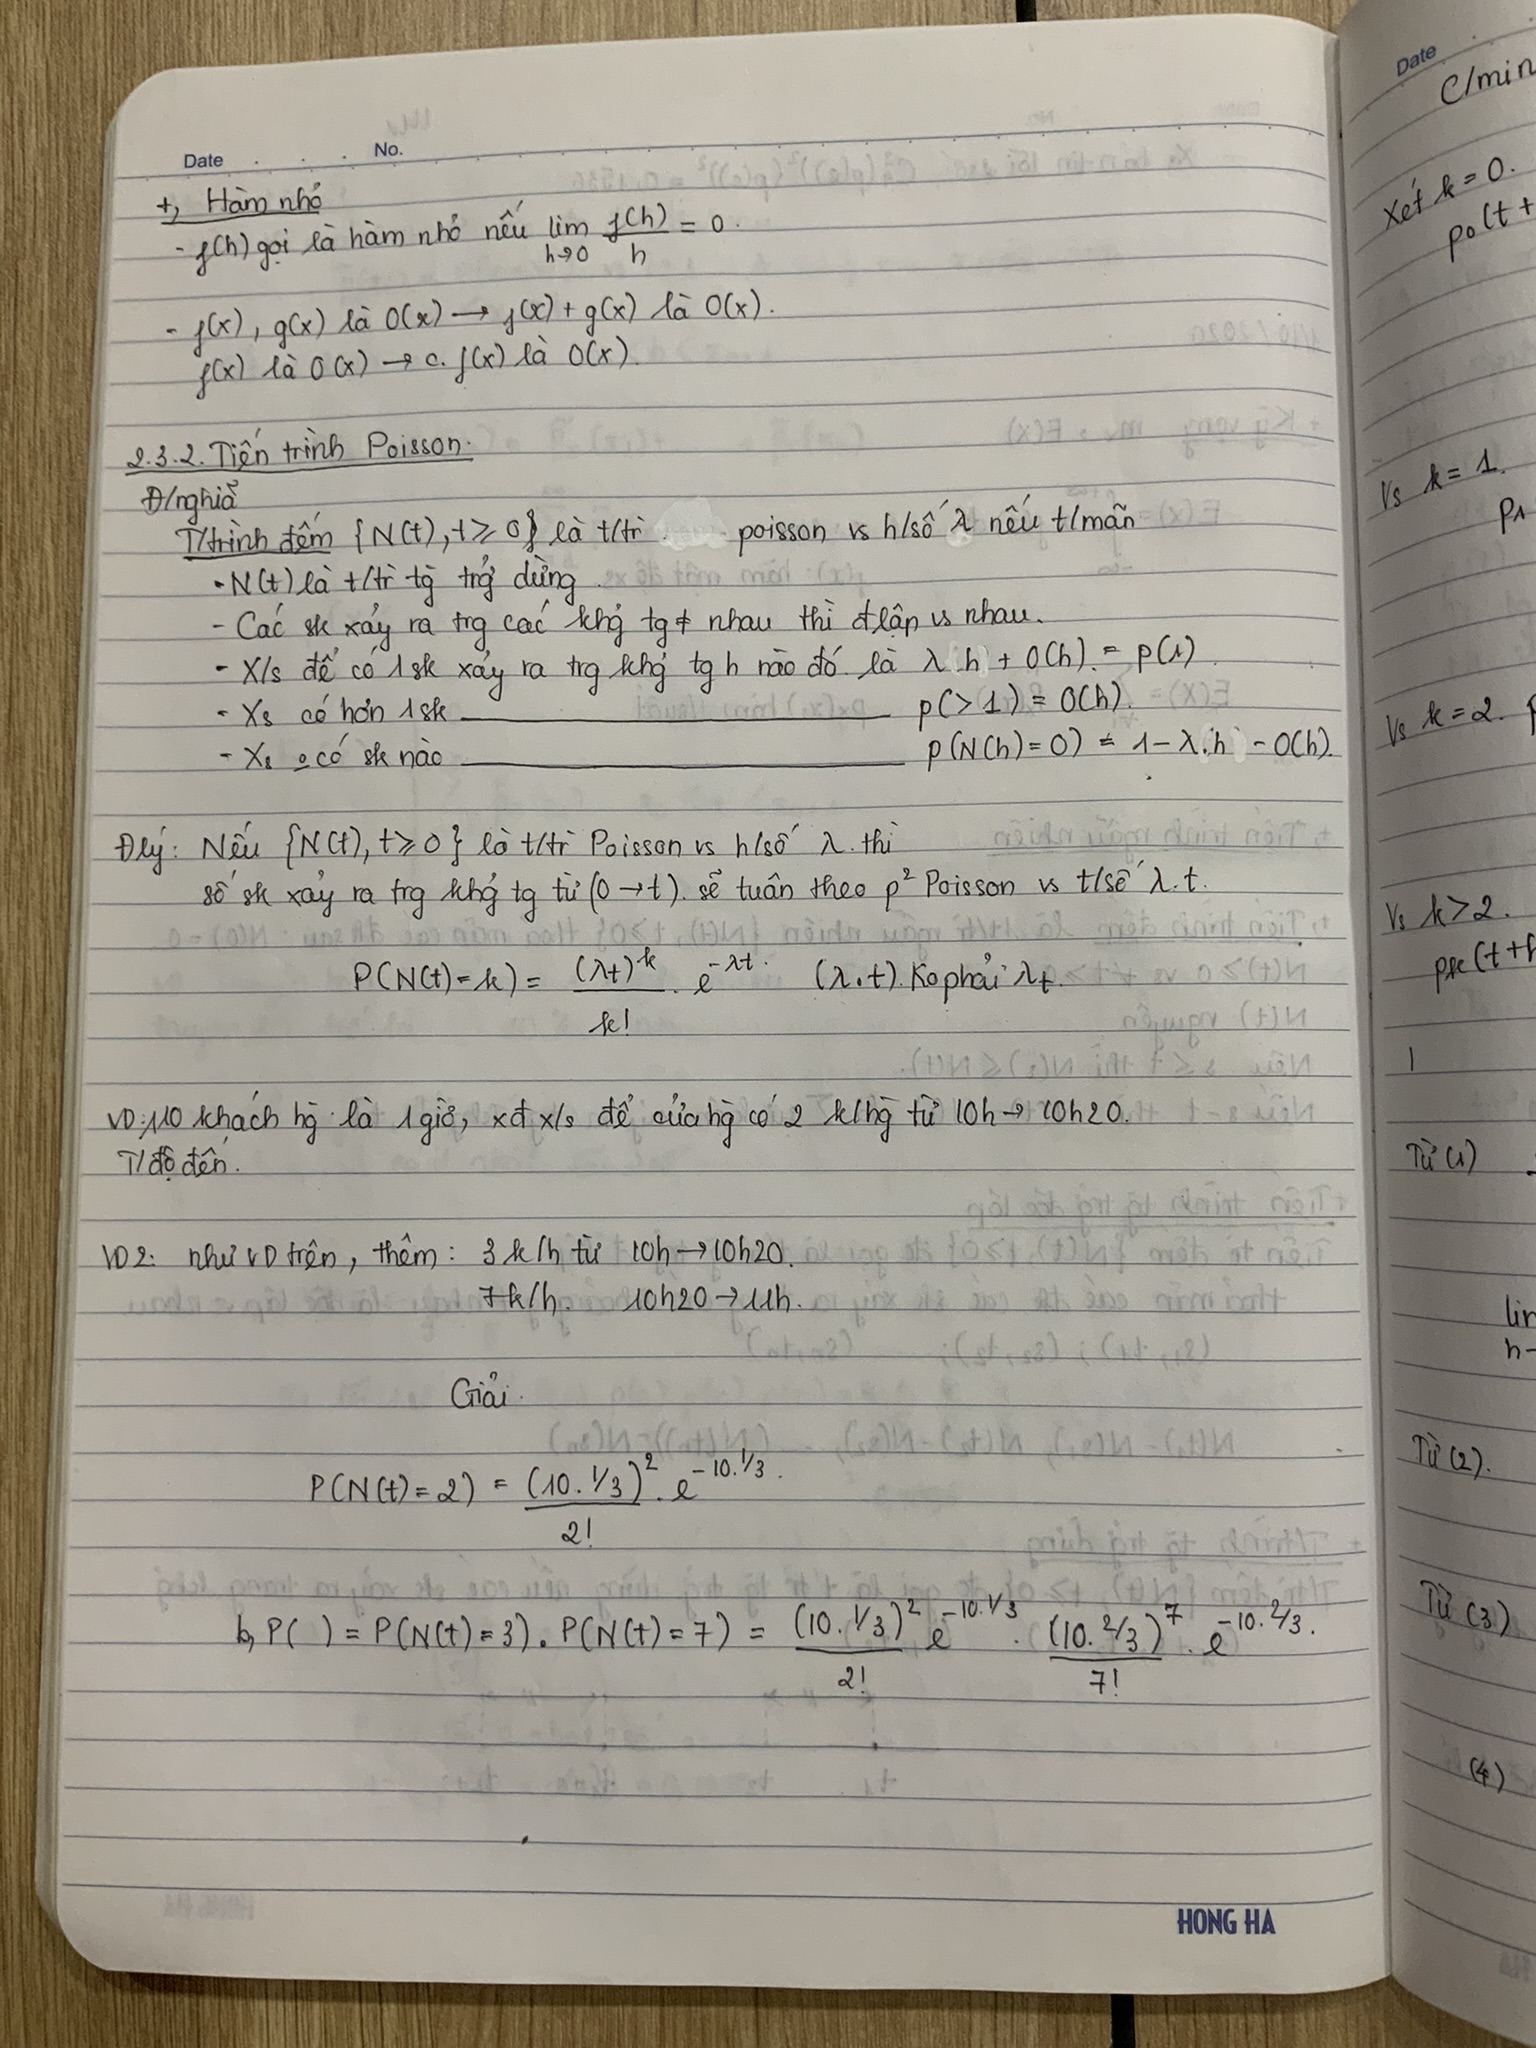 Date . . . No.
+, Hàm nhỏ
- f(h) gọi là hàm nhỏ nếu lim h→0 f(h)/h = 0.
- f(x), g(x) là O(x) → f(x) + g(x) là O(x).
f(x) là O(x) → c. f(x) là O(x).
2.3.2. Tiến trình Poisson.
Đ/nghiã
T/trình đếm {N(t), t ≥ 0} là t/trì poisson vs h/số λ nếu t/mãn
- N(t) là t/trì tg̀ trở dừng
- Các sk xảy ra trg các khg̉ tg ≠ nhau thì đlập vs nhau.
- X/s để có 1 sk xảy ra trg khg̉ tg h nào đó là λ h + O(h). = p(1)
- Xs có hơn 1 sk ________ p(>1) = O(h).
- Xs o có sk nào ________ p(N(h) = 0) = 1 - λ.h - O(h).
Đlý: Nếu {N(t), t ≥ 0} là t/trì Poisson vs h/số λ. thì
số sk xảy ra trg khg̉ tg từ (0 → t). sẽ tuân theo p² Poisson vs t/số λ.t.
P(N(t) = k) = (λt)^k / k! . e^-λt. (λ.t). Ko phải λ_t.
VD:1 10 khách hg̀ là 1 giờ, xđ x/s để cửa hg̀ có 2 k/hg̀ từ 10h → 10h20.
T/độ đến.
VD2: như VD trên, thêm: 3 k/h từ 10h → 10h20.
7 k/h. 10h20 → 11h.
Giải.
P(N(t) = 2) = (10. 1/3)^2 / 2! . e^-10.1/3.
b, P( ) = P(N(t) = 3). P(N(t) = 7) = (10. 1/3)^2 / 2! e^-10.1/3 . (10. 2/3)^7 / 7! . e^-10.2/3.
HONG HA
Date
C/min
Xét k = 0.
p0(t +
Vs k = 1.
p1
Vs k = 2. p
Vs k > 2.
pk(t+h
Từ (1)
lim
h→
Từ (2).
Từ (3)
(4)